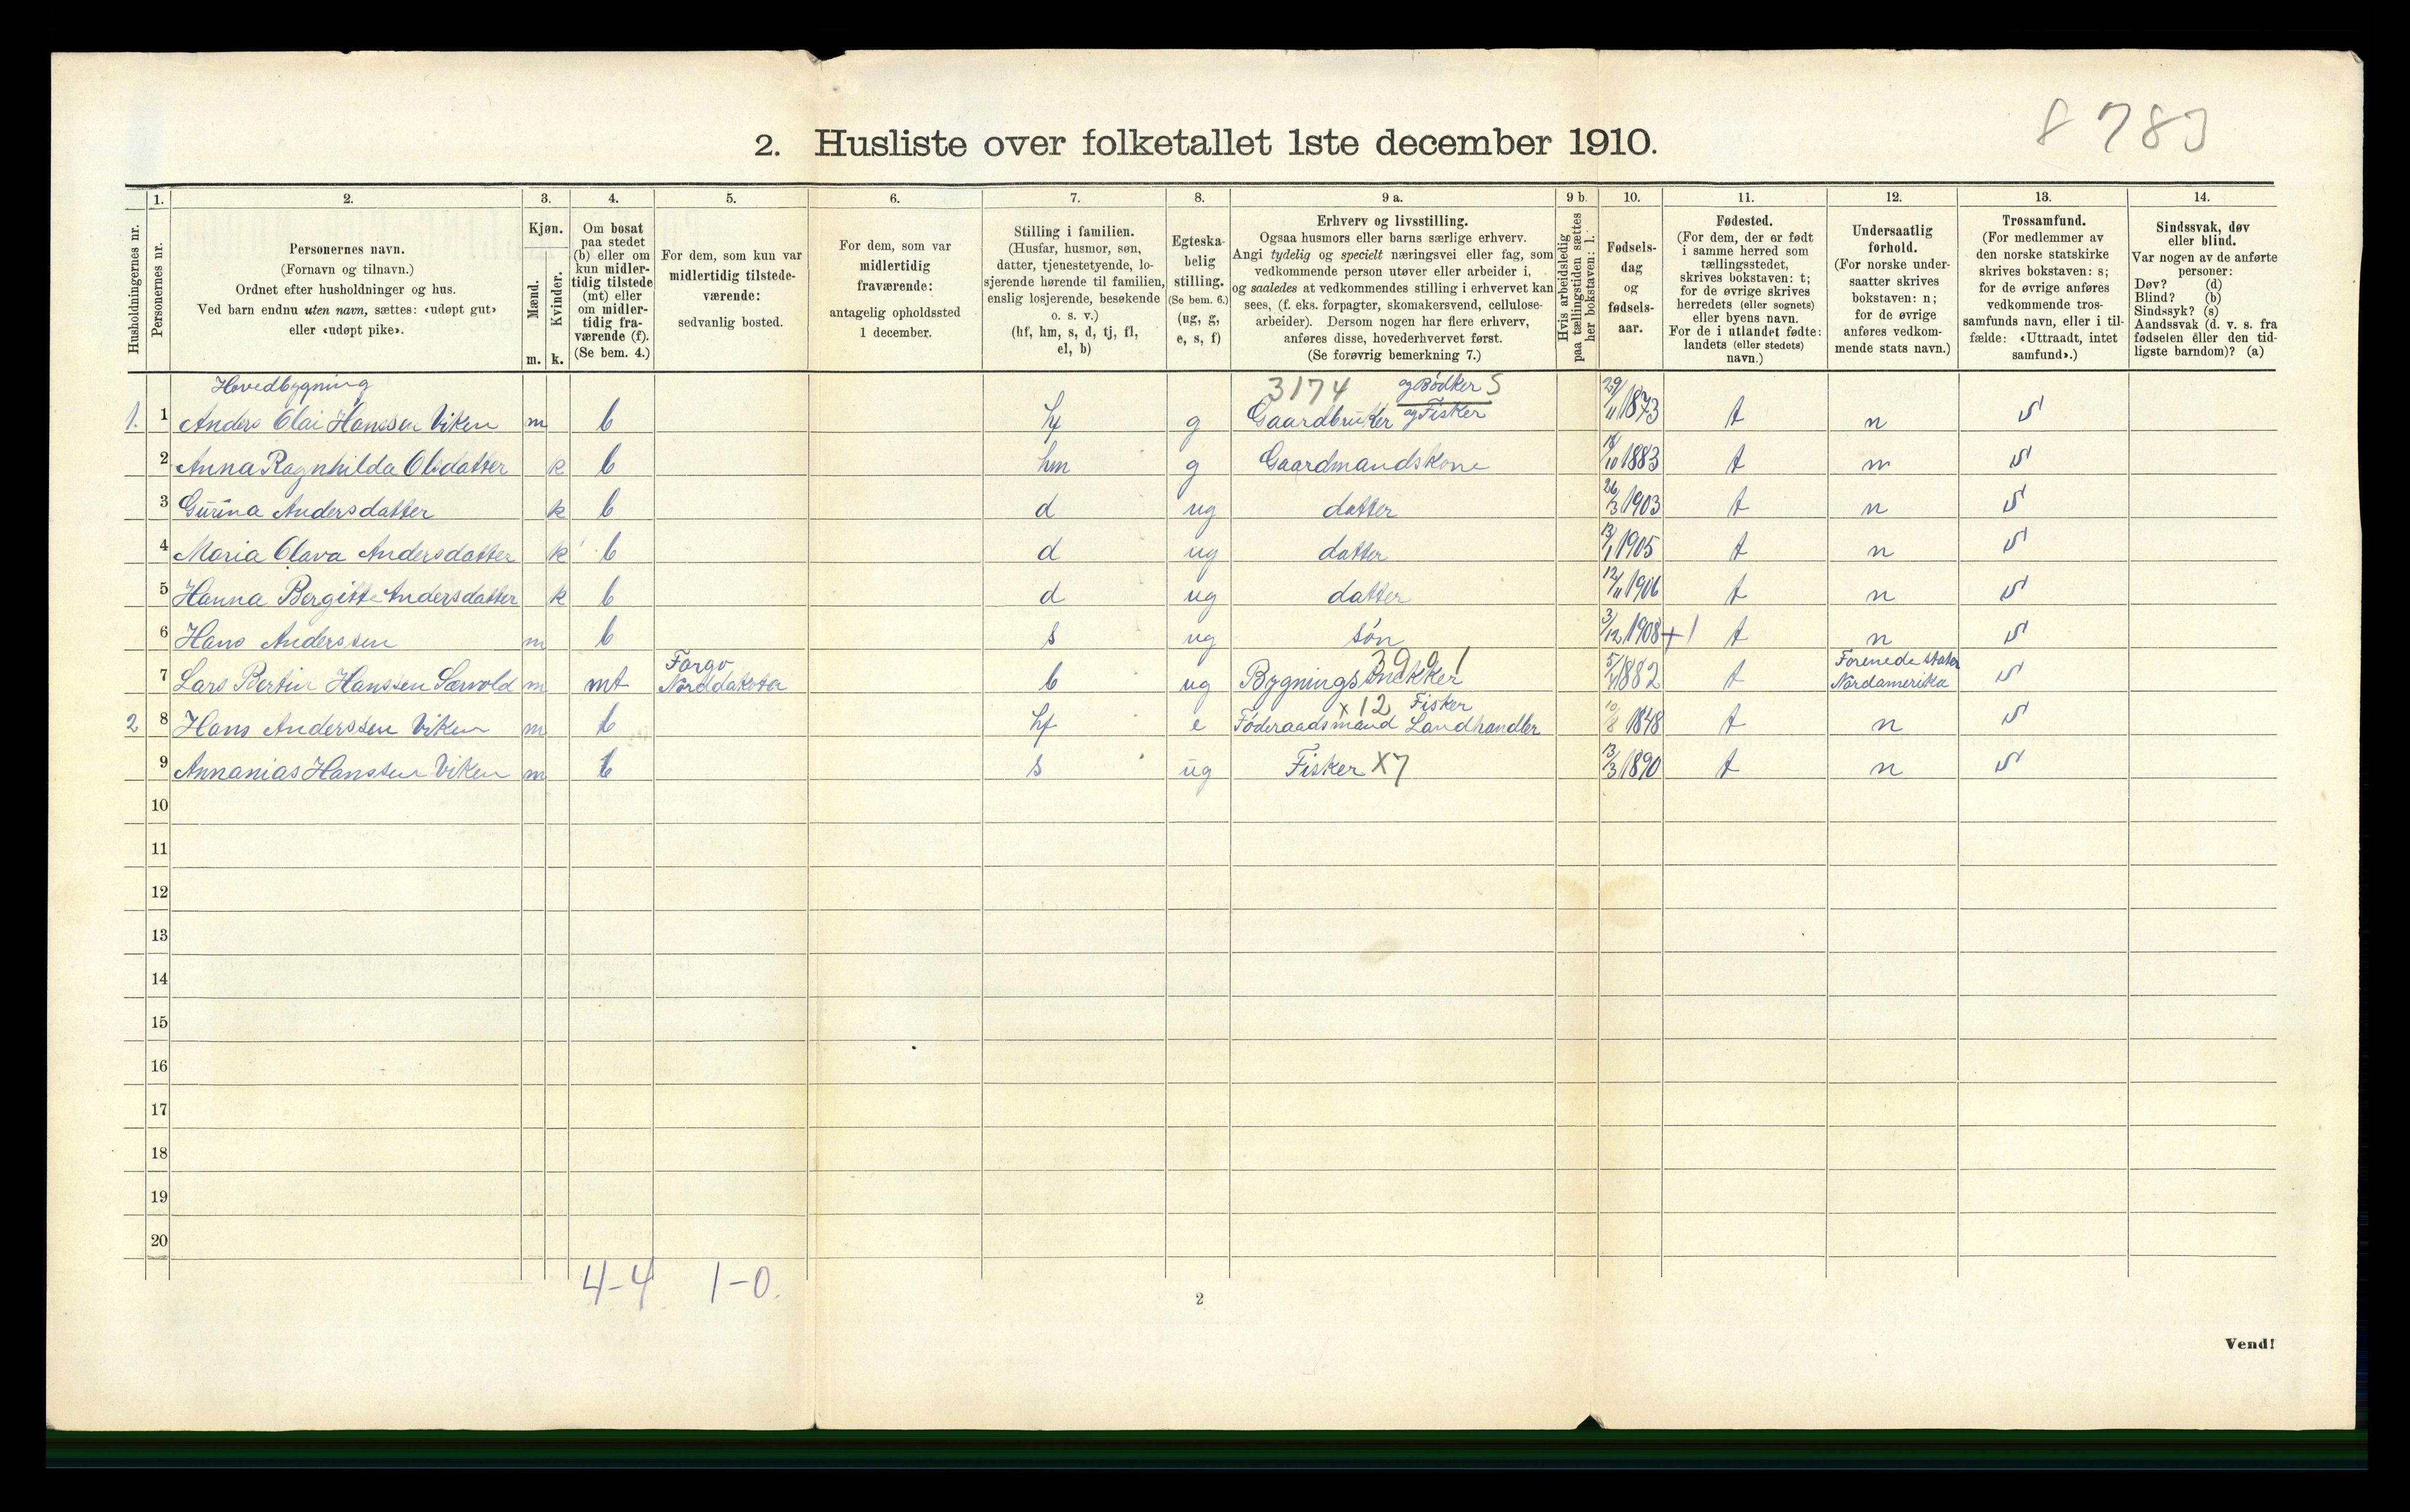 8 783
2. Husliste over folketallet 1ste december 1910.
1. 2. 3. 4. 5. 6. 7. 8. 9 a. 9 b. 10. 11. 12. 13. 14.
Husholdningernes nr.
Personernes nr.
Personernes navn.
(Fornavn og tilnavn.)
Ordnet efter husholdninger og hus.
Ved barn endnu uten navn, sættes: «udøpt gut»
eller «udøpt pike».
Kjøn.
Mænd.
Kvinder.
m. k.
Om bosat
paa stedet
(b) eller om
kun midler-
tidig tilstede
(mt) eller
om midler-
tidig fra-
værende (f).
(Se bem. 4.)
For dem, som kun var
midlertidig tilstede-
værende:
sedvanlig bosted.
For dem, som var
midlertidig
fraværende:
antagelig opholdssted
1 december.
Stilling i familien.
(Husfar, husmor, søn,
datter, tjenestetyende, lo-
sjerende hørende til familien,
enslig losjerende, besøkende
o. s. v.)
(hf, hm, s, d, tj, fl,
el, b)
Egteska-
belig
stilling.
(Se bem. 6.)
(ug, g,
e, s, f)
Erhverv og livsstilling.
Ogsaa husmors eller barns særlige erhverv.
Angi tydelig og specielt næringsvei eller fag, som
vedkommende person utøver eller arbeider i,
og saaledes at vedkommendes stilling i erhvervet kan
sees, (f. eks. forpagter, skomakersvend, cellulose-
arbeider). Dersom nogen har flere erhverv,
anføres disse, hovederhvervet først.
(Se forøvrig bemerkning 7.)
Hvis arbeidsledig
paa tællingstiden sættes
her bokstaven: l.
Fødsels-
dag
og
fødsels-
aar.
Fødested.
(For dem, der er født
i samme herred som
tællingsstedet,
skrives bokstaven: t;
for de øvrige skrives
herredets (eller sognets)
eller byens navn.
For de i utlandet fødte:
landets (eller stedets)
navn.)
Undersaatlig
forhold.
(For norske under-
saatter skrives
bokstaven: n;
for de øvrige
anføres vedkom-
mende stats navn.)
Trossamfund.
(For medlemmer av
den norske statskirke
skrives bokstaven: s;
for de øvrige anføres
vedkommende tros-
samfunds navn, eller i til-
fælde: «Uttraadt, intet
samfund».)
Sindssvak, døv
eller blind.
Var nogen av de anførte
personer:
Døv? (d)
Blind? (b)
Sindssyk? (s)
Aandssvak (d. v. s. fra
fødselen eller den tid-
ligste barndom)? (a)
Hovedbygning 3174 og Bødker 5
1. 1 Anders Olai Hanssen Viken m b hf g Gaardbruker og Fisker 29/11 1873 t n s
2 Anna Ragnhilda Olsdatter k b hm g Gaardmandskone 18/10 1883 t n s
3 Gurina Andersdatter k b d ug datter 26/3 1903 t n s
4 Maria Olava Andersdatter k b d ug datter 13/1 1905 t n s
5 Hanna Bergitte Andersdatter k b d ug datter 12/11 1906 t n s
6 Hans Anderssen m b s ug søn 3/12 1908 +1 t n s
Fargo Forenede stater
7 Lars Bertin Hanssen Sævold m mt Norddakota b ug Bygningssnekker 1882 t Nordamerika s
x12 Fisker
2 8 Hans Anderssen Viken m b hf e Føderaadsmand Landhandler 10/8 1848 t n s
9 Annanias Hanssen Viken m b s ug Fisker x7 13/3 1890 t n s
10
11
12
13
14
15
16
17
18
19
20
4-4 1-0.
2
Vend!